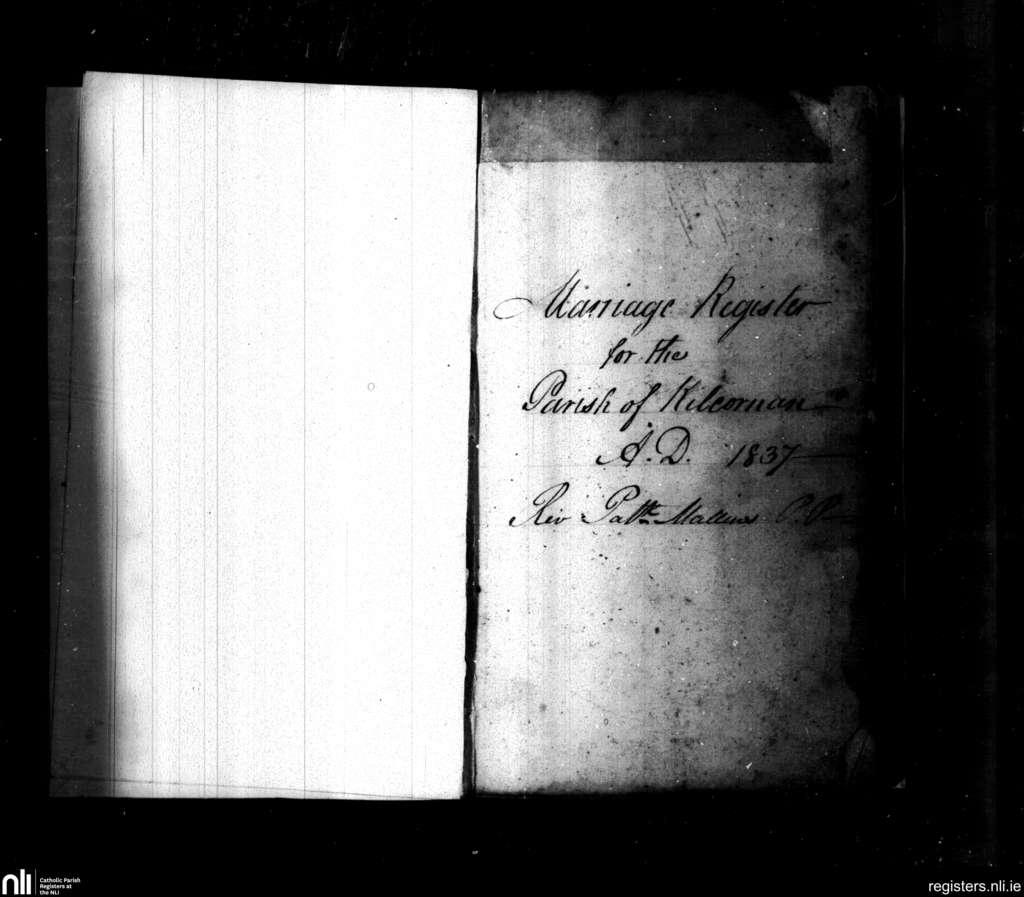 Marriage Register
for the
Parish of Kilcornan
A.D. 1837
Rev Patk. P.P.
nli
Catholic Parish
Registers at
the NLI
registers.nli.ie